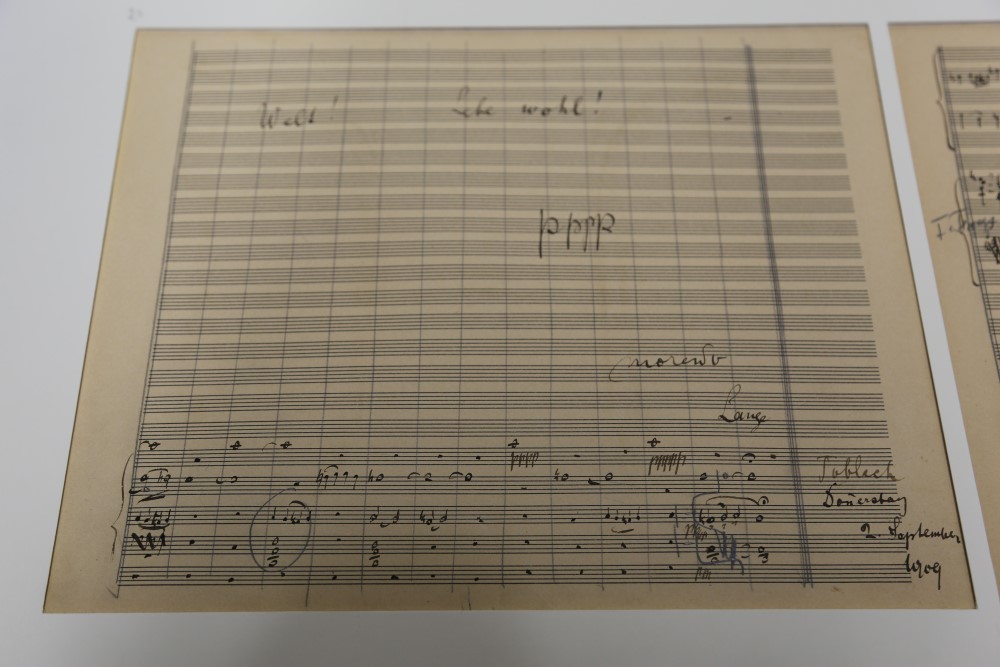 Welt! Lebe wohl!
pppp
morendo
Lang
pppp ppppp
Toblach
Don̄erstag
2. September
1909